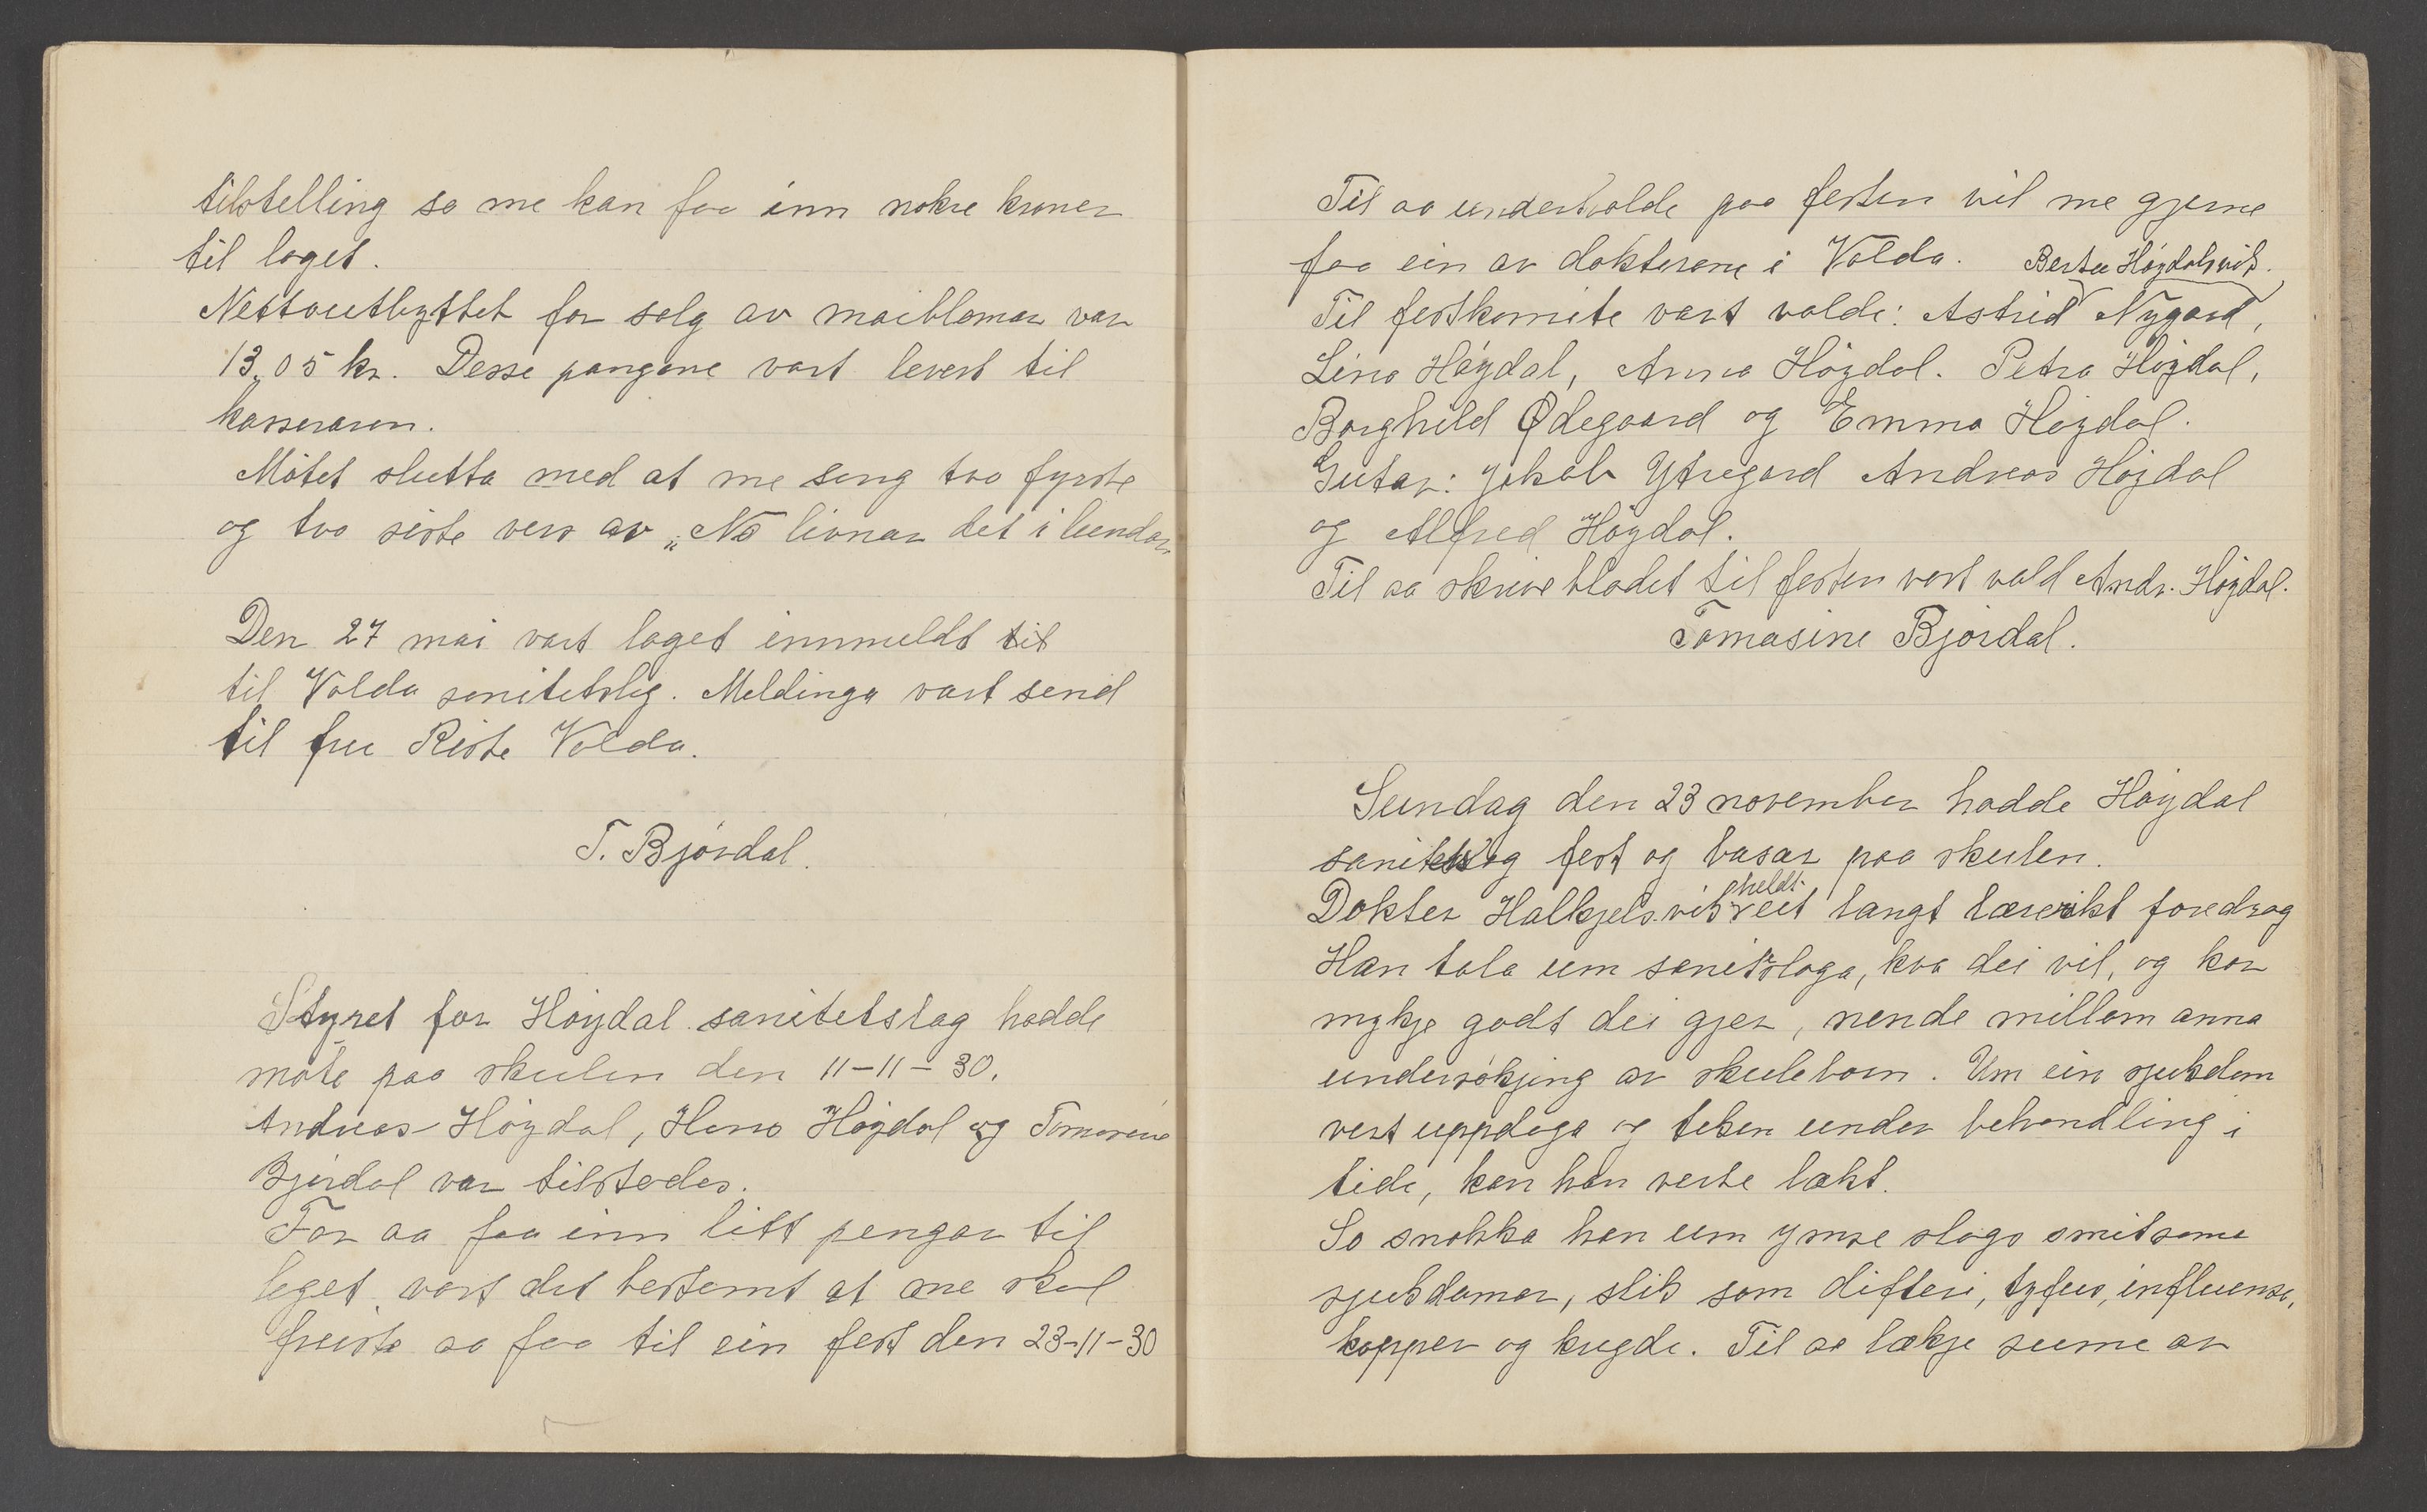 tilstelling so me kan faa inn nokre kroner
til laget.
Nettoutbyttet for salg av maiblomar var
13,05 kr. Desse pangane vart levert til
kasseraren.
Møtet slutta med at me song tvo fyrste
og tvo siste vers av „No livnar det i lundar
Den 27 mai vart laget innmeldt til
til Volda sanitetslag. Meldinga vart send
til fru Riste Volda.
T. Bjørdal.
Styret for Høydal sanitetslag hadde
møte paa skulen den 11-11-30.
Andreas Høydal, Hans Høydal og Tomasine
Bjørdal var tilstedes.
For aa faa inn litt pengar til
laget vart det bestemt at me skal
freiste aa faa til ein fest den 23-11-30
Til aa underhalde paa festen vil me gjerne
faa ein av dokterane i Volda. Berta Høydalsvik.
Til festkomite vart valde: Astrid Nygard,
Lina Høydal, Anna Høydal. Petra Høydal,
Borghild Ødegaard og Emma Høydal.
Gutar: Jakob Ytregard Andreas Høydal
og Alfred Høydal.
Til aa skrive bladet til festen vart vald Andr. Høydal.
Tomasine Bjørdal.
Sundag den 23 november hadde Høydal
sanitetslag fest og basar paa skulen.
Dokter Halkjelsvik heldt eit langt lærerikt foredrag
Han tala um sanitslaga, kva dei vil, og kor
mykje godt dei gjer, nende millom anna
undersøkjing av skuleborn. Um ein sjukdom
vert uppdaga og teken under behandling i
tide, kan han verte lækt.
So snakka han um ymse slags smitsame
sjukdomar, slik som difteri, tyfus, influensa,
kopper og kregde. Til aa lækje sume av